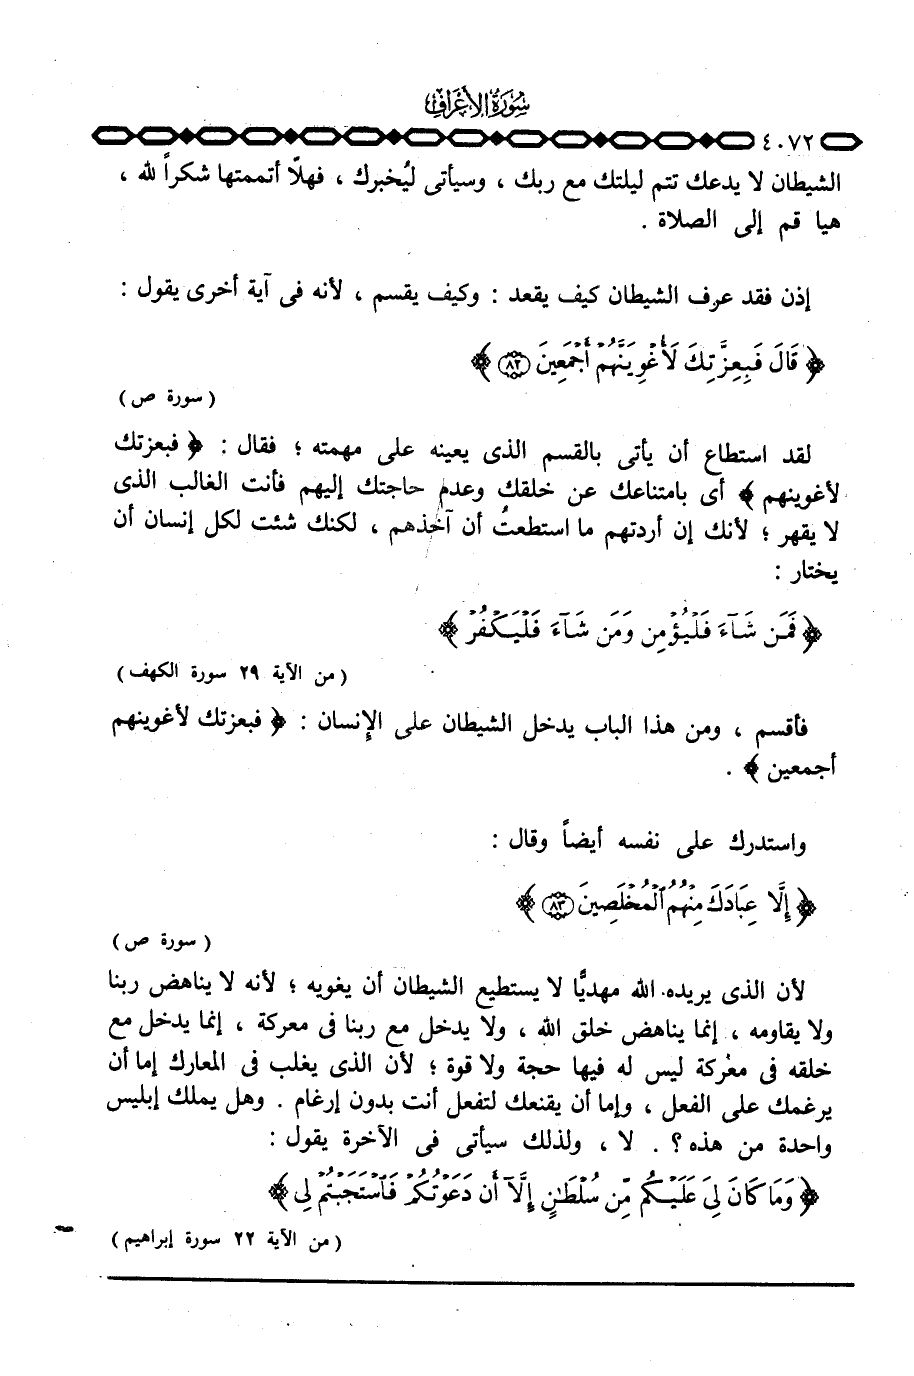 سُورَةُ الأَعْرَافِ
٤٠٧٢
الشيطان لا يدعك تتم ليلتك مع ربك ، وسيأتى ليُخبرك ، فهلاّ أتممتها شكراً لله ،
هيا قم إلى الصلاة .
إذن فقد عرف الشيطان كيف يقعد : وكيف يقسم ، لأنه فى آية أخرى يقول :
﴿ قَالَ فَبِعِزَّتِكَ لَأُغْوِيَنَّهُمْ أَجْمَعِينَ ﴿٨٢﴾ ﴾
( سورة ص )
لقد استطاع أن يأتى بالقسم الذى يعينه على مهمته ؛ فقال : ﴿ فبعزتك
لأغوينهم ﴾ أى بامتناعك عن خلقك وعدم حاجتك إليهم فأنت الغالب الذى
لا يقهر ؛ لأنك إن أردتهم ما استطعتُ أن آخذهم ، لكنك شئت لكل إنسان أن
يختار :
﴿ فَمَن شَآءَ فَلْيُؤْمِن وَمَن شَآءَ فَلْيَكْفُرْ ﴾
( من الآية ٢٩ سورة الكهف )
فأقسم ، ومن هذا الباب يدخل الشيطان على الإنسان : ﴿ فبعزتك لأغوينهم
أجمعين ﴾ .
واستدرك على نفسه أيضاً وقال :
﴿ إِلَّا عِبَادَكَ مِنْهُمُ ٱلْمُخْلَصِينَ ﴿٨٣﴾ ﴾
( سورة ص )
لأن الذى يريده الله مهديًّا لا يستطيع الشيطان أن يغويه ؛ لأنه لا يناهض ربنا
ولا يقاومه ، إنما يناهض خلق الله ، ولا يدخل مع ربنا فى معركة ، إنما يدخل مع
خلقه فى معْركة ليس له فيها حجة ولا قوة ؛ لأن الذى يغلب فى المعارك إما أن
يرغمك على الفعل ، وإما أن يقنعك لتفعل أنت بدون إرغام . وهل يملك إبليس
واحدة من هذه ؟ . لا ، ولذلك سيأتى فى الآخرة يقول :
﴿ وَمَا كَانَ لِىَ عَلَيْكُم مِّن سُلْطَٰنٍ إِلَّآ أَن دَعَوْتُكُمْ فَٱسْتَجَبْتُمْ لِى ﴾
( من الآية ٢٢ سورة إبراهيم )